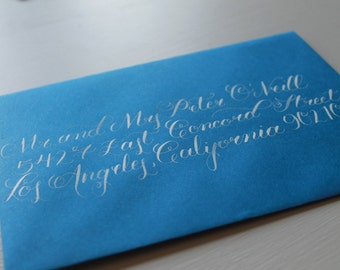 Mr and Mrs Peter O'Neill
5427 East Concord Street
Los Angeles, California 90210